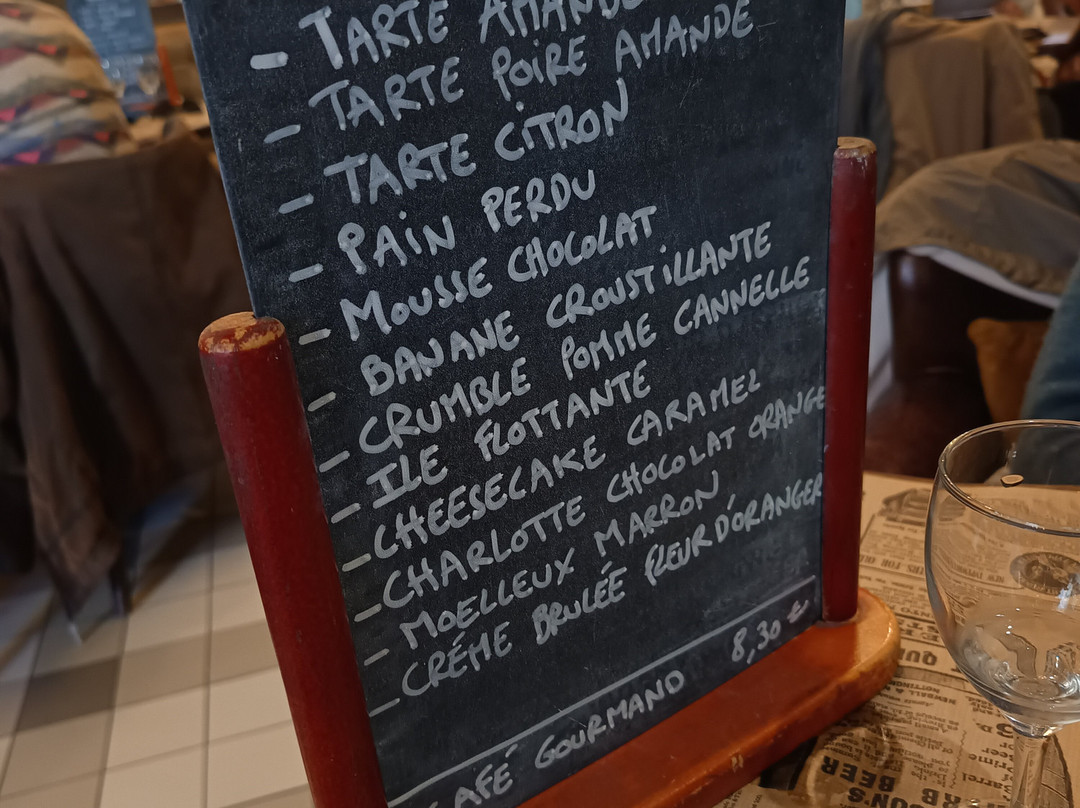 - TARTE AMANDE
- TARTE POIRE AMANDE
- TARTE CITRON
- PAIN PERDU
- MOUSSE CHOCOLAT
- BANANE CROUSTILLANTE
- CRUMBLE POMME CANNELLE
- ILE FLOTTANTE
- CHEESECAKE CARAMEL
- CHARLOTTE CHOCOLAT ORANGE
- MOELLEUX MARRON
- CRÉME BRULÉE FLEUR D'ORANGER
CAFÉ GOURMAND 8,30 €
BEER